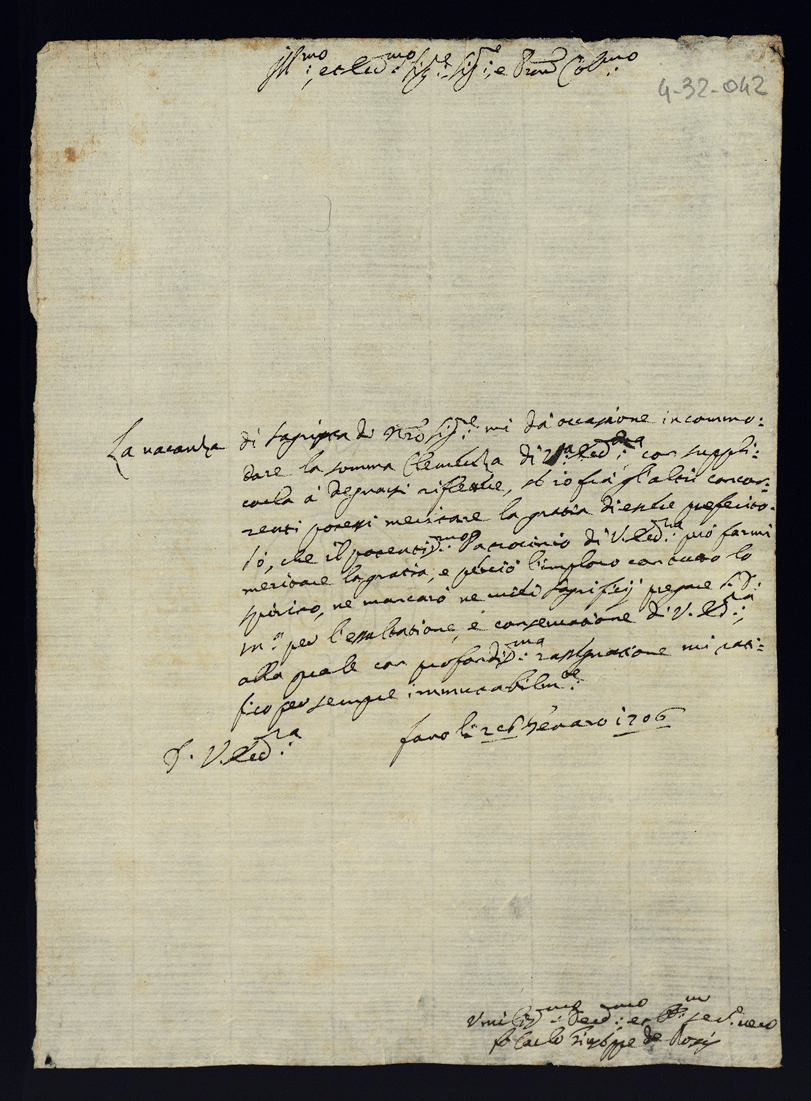 Ill:mo, et Red:mo Sig:re Sig:re, e Pron Col:mo
4-32-042
La vacanza di Sagrista di Nro Sig:re mi dà occasione incommo:
dare la somma Clemenza di V:ra Red:ma con suppli:
carla à degnarsi riflettere, se io frà gl'altri concor:
renti potessi meritare la gratia d'essere preferito.
Sò, che il potentiss:mo Patrocinio di V. Red:ma può farmi
meritare la gratia, e perciò l'imploro con tutto lo
spirito, ne mancarò ne miei Sagrificij pregare S. D:
M:a per l'essaltatione, e conservatione di V. Red:ma;
alla quale con profondiss:ma rassegnatione mi rati:
fico per sempre immutabilm:te
D. V. Red:ma
Fano li 26 Genaro 1706
Umiliss:mo Devo:mo et Obb:mo Ser:re vero
Carlo Giuseppe de Rossi